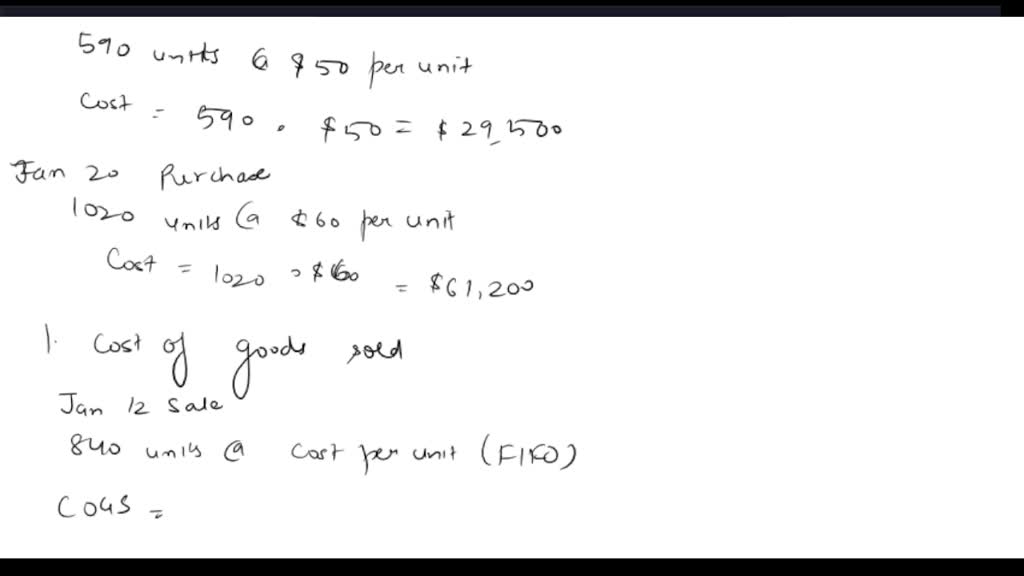 590 units @ $50 per unit
Cost = 590 . $50 = $29,500
Jan 20 Purchase
1020 units @ $60 per unit
Cost = 1020 . $60 = $61,200
1. Cost of goods sold
Jan 12 Sale
840 units @ cost per unit (FIFO)
COGS =